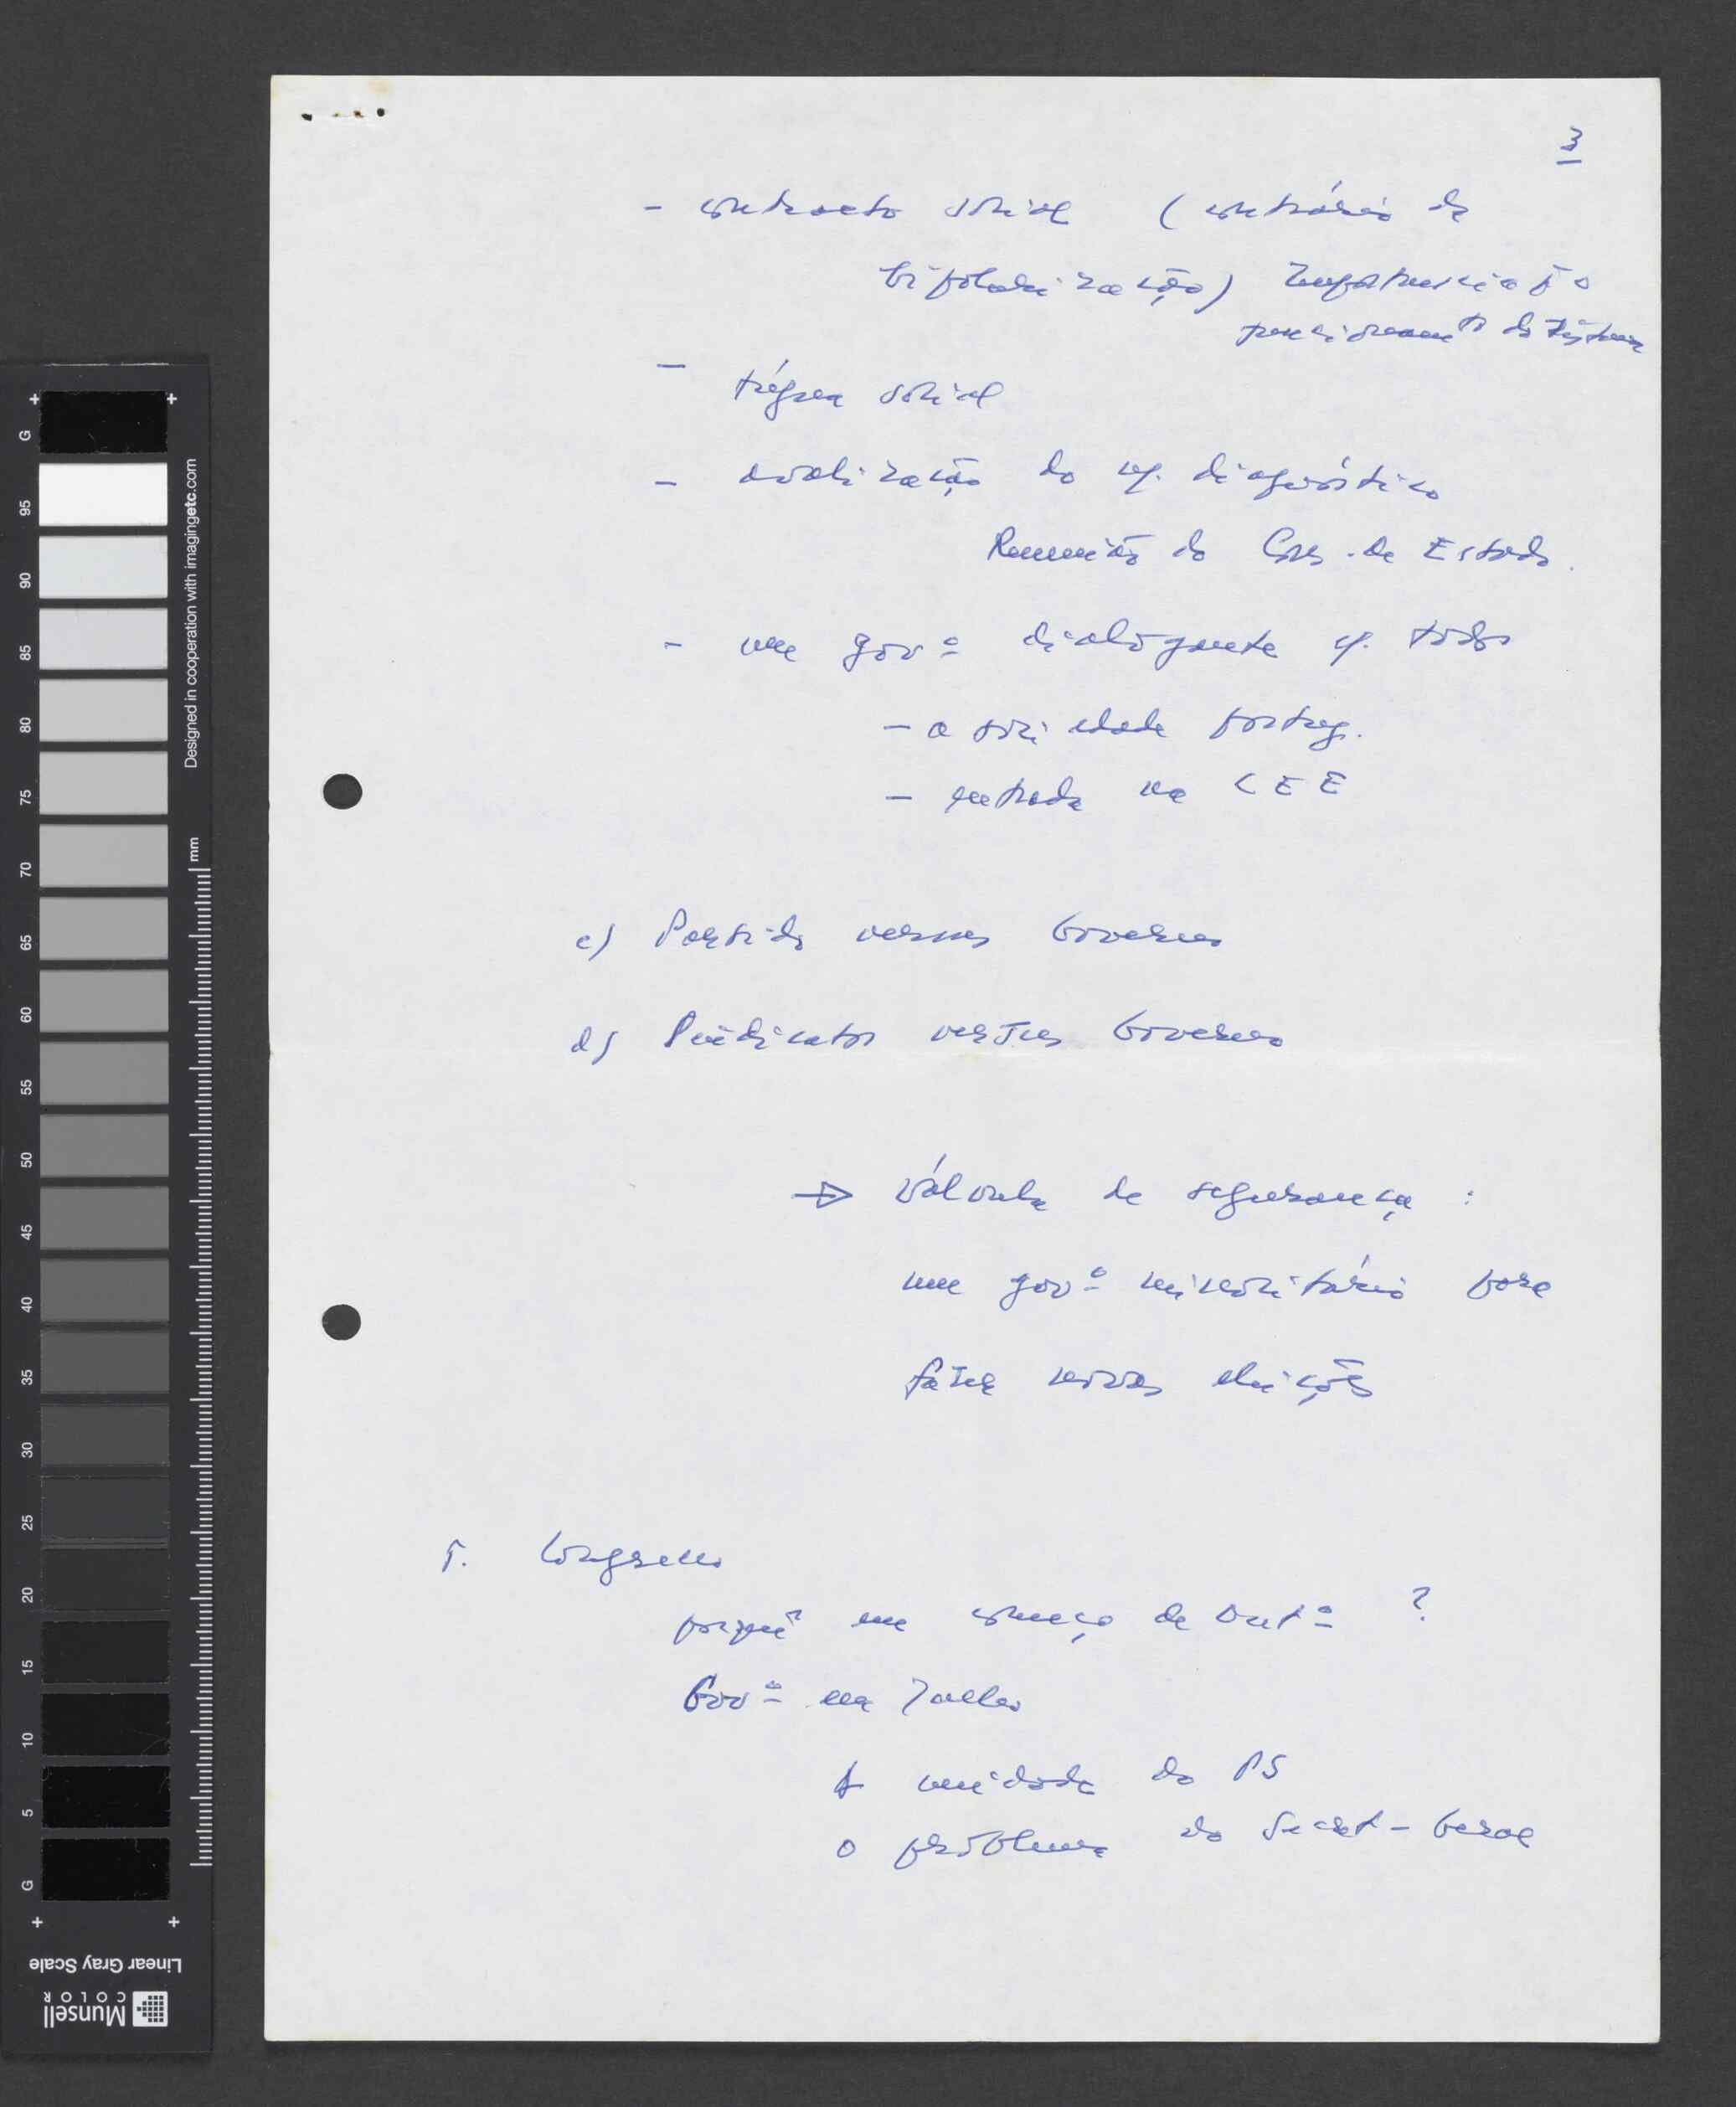 3
- contracto social (contrário da
bipolarização) importância p o
funcionamento do sistema
- trégua social
- avalização do diagnóstico
Reunião do Cons. de Estado.
- um gov.º dialogante c/ todos
- a sociedade portug.
- entrada na CEE
c) Partido versus Governo
d) Sindicatos versus Governo
→ válvula de segurança :
um gov.º minoritário para
fazer novas eleições
5. Congresso
porquê em começo de Out.º ?
Gov.º em Julho
A unidade do PS
o problema do Secret-Geral
G 95 90 85 80 75 70 65 60 55 50 45 40 35 30 25 20 15 10 5 G
Designed in cooperation with imagingetc.com
mm
Linear Gray Scale
Munsell
COLOR